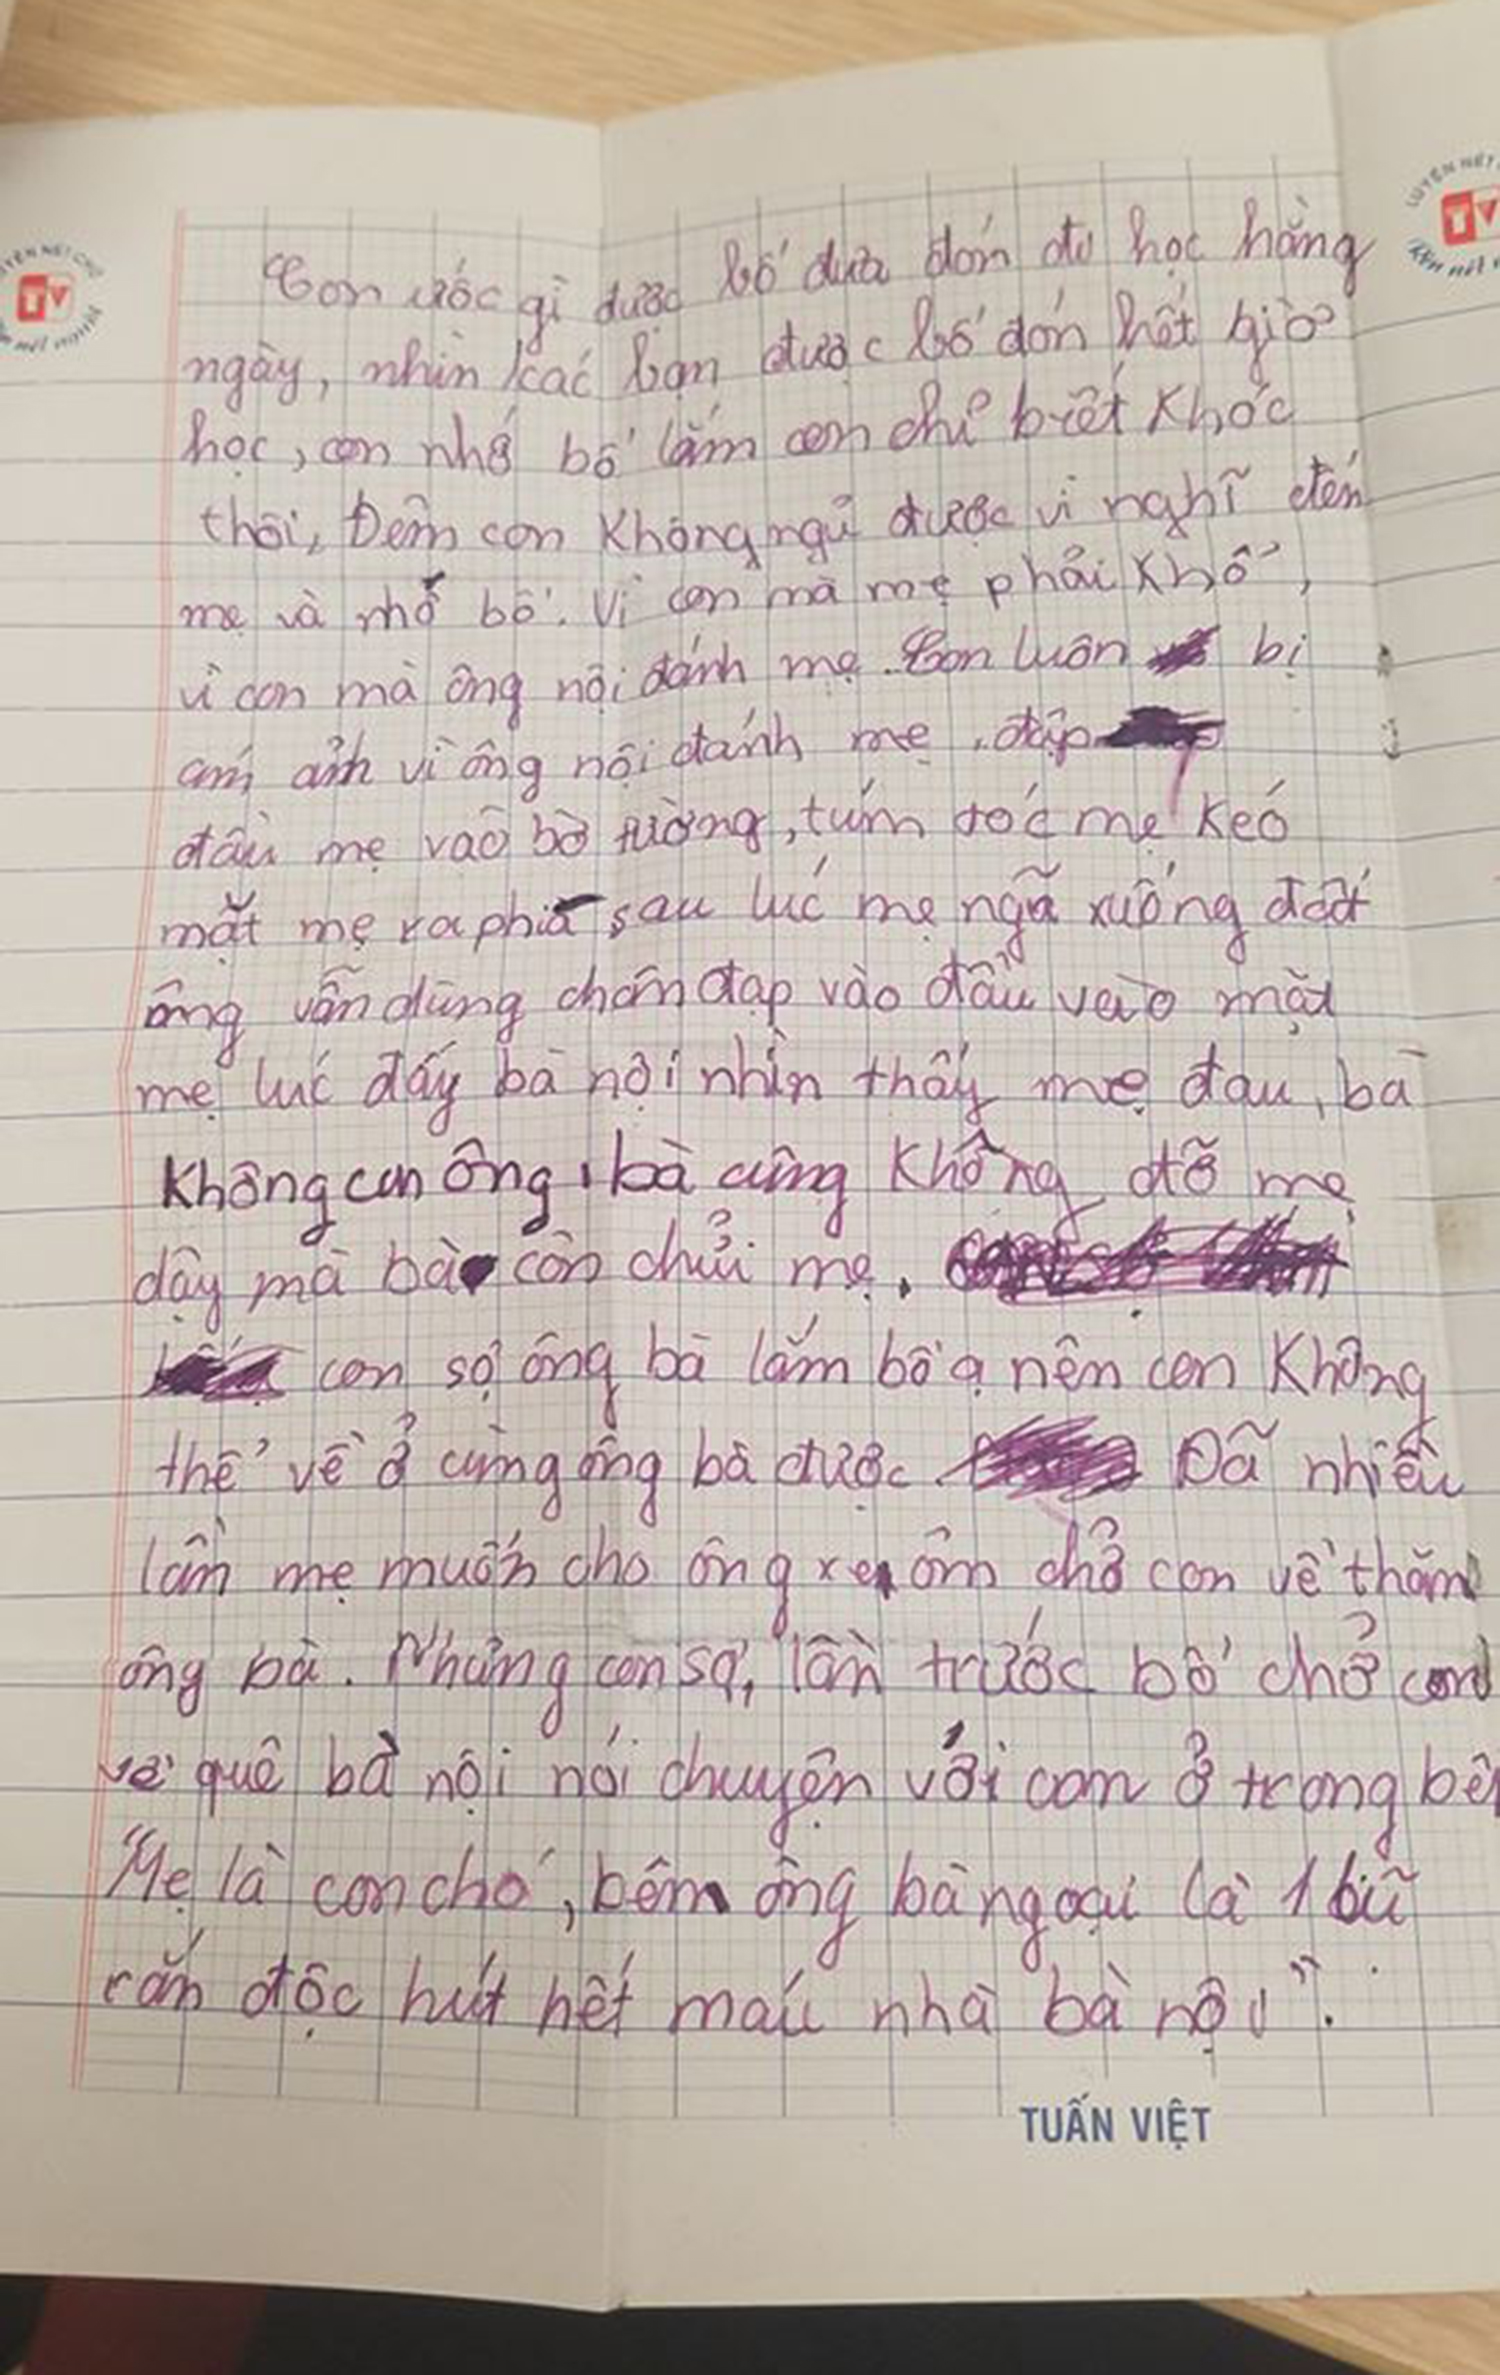 Con ước gì được bố đưa đón đi học hằng
ngày, nhìn các bạn được bố đón hết giờ
học, con nhớ bố lắm con chỉ biết khóc
thôi, Đêm con không ngủ được vì nghĩ đến
mẹ và nhớ bố. Vì con mà mẹ phải khổ,
vì con mà ông nội đánh mẹ. Con luôn bị
ám ảnh vì ông nội đánh mẹ, đập
đầu mẹ vào bờ tường, túm tóc mẹ kéo
mặt mẹ ra phía sau lúc mẹ ngã xuống đất
ông vẫn dùng chân đạp vào đầu vào mặt
mẹ lúc đấy bà nội nhìn thấy mẹ đau, bà
không can ông, bà cũng không đỡ mẹ
dậy mà bà còn chửi mẹ.
con sợ ông bà lắm bố ạ nên con không
thể về ở cùng ông bà được. Đã nhiều
lần mẹ muốn cho ông xe ôm chở con về thăm
ông bà. Nhưng con sợ, lần trước bố chở con
về quê bà nội nói chuyện với con ở trong bếp
"Mẹ là con chó, bên ông bà ngoại là 1 lũ
rắn độc hút hết máu nhà bà nội".
TUẤN VIỆT
LUYỆN NÉT CHỮ
TV
Rèn nết người
LUYỆN NÉT
TV
Rèn nết